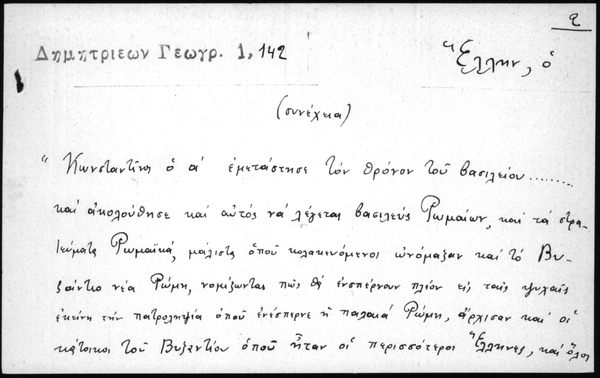 2
Δημητριεων Γεωγρ. 1, 142
Ἕλλην, ὁ
(συνέχεια)
" Κωνσταντῖνος ὁ α' ἐμετάστησε τὸν θρόνον τοῦ βασιλείου.........
καὶ ἀκολούθησε καὶ αὐτὸς νὰ λέγεται βασιλεὺς Ῥωμαίων, καὶ τὰ στρα-
τεύματα Ῥωμαϊκά, μάλιστα ὁποῦ κολακευόμενοι ὠνόμαξαν καὶ τὸ Βυ-
ζάντιο νέα Ῥώμη, νομίζωντας πῶς θὰ ἐνσπέρνουν πλέον εἰς ταῖς ψυχαῖς
ἐκείνη τὴν πατροληψία ὁποῦ ἐνέσπερνε ἡ παλαιὰ Ῥώμη, ἄρχισαν καὶ οἱ
κάτοικοι τοῦ Βυζαντίου ὁποῦ ἦταν οἱ περισσότεροι Ἕλληνες, καὶ ὅλοι